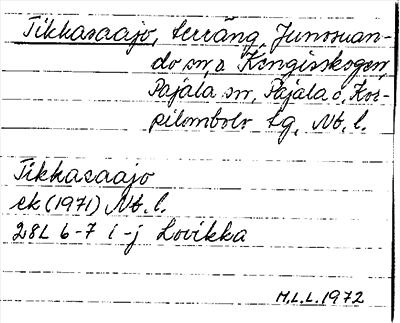 Tikkasaajo, terräng, Junosuan-
do sn, o Kengisskogen,
Pajala sn, Pajala o. Kor-
pilombolo tg, Nb. l.
Tikkasaajo
ek (1971) Nb. l.
28L 6-7 i-j Lovikka
M.L.L. 1972